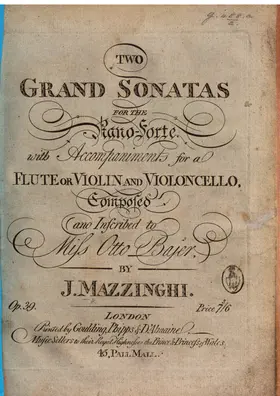 TWO
GRAND SONATAS
FOR THE
Piano-Forte
with Accompaniments for a
FLUTE OR VIOLIN AND VIOLONCELLO,
Composed
and Inscribed to
Miss Otto Bajer.
BY
J. MAZZINGHI.
Op. 39. Price 7/6
LONDON
Printed by Goulding, Phipps & D'Almaine
Music Sellers to their Royal Highnesses the Prince & Princess of Wales
45, PALL MALL.